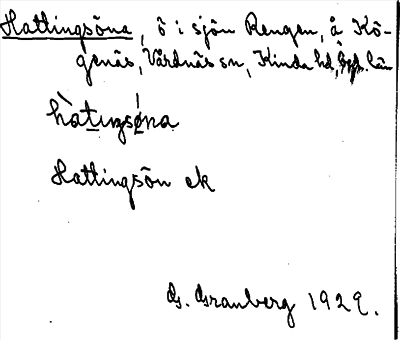 Hattingsöna, ö i sjön Rengen, å Kö-
genäs, Vårdnäs sn, Kinda hd, Ögtl. län
hàtiŋsǿna
Hattingsön ek
G. Granberg 1929.